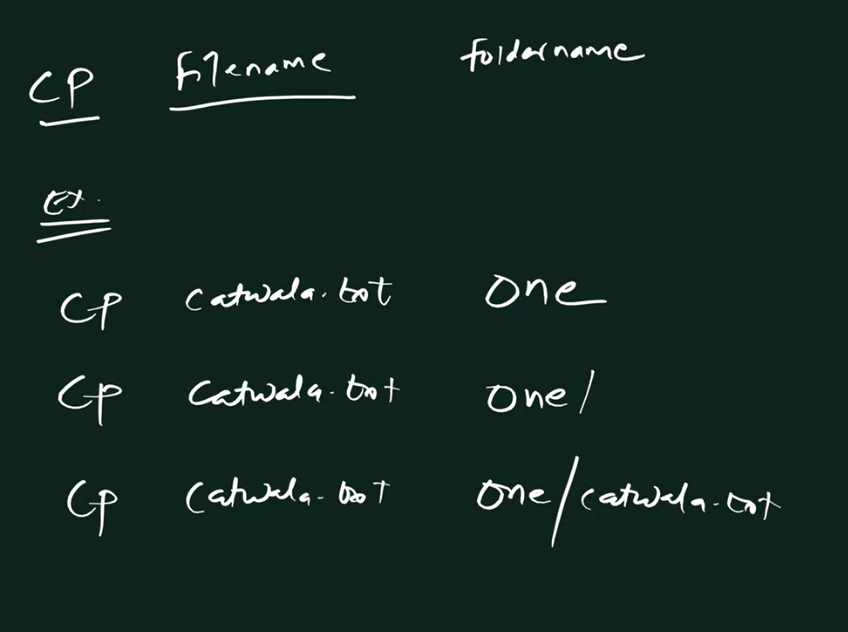 CP Filename foldername
Ex.
CP catwala.txt one
CP catwala.txt one/
CP catwala.txt one/catwala.txt